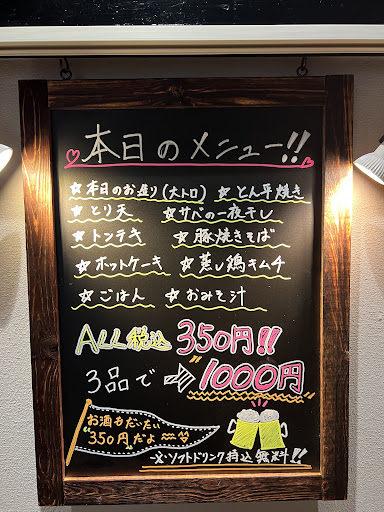 本日のメニュー!!
☆本日のお造り(大トロ) ☆とん平焼き
☆とり天 ☆サバの一夜干し
☆トンテキ ☆豚焼きそば
☆ホットケーキ ☆蒸し鶏キムチ
☆ごはん ☆おみそ汁
ALL税込350円!!
3品で⇒1000円
お酒もだいたい
350円だよ
※ソフトドリンク持込無料!!